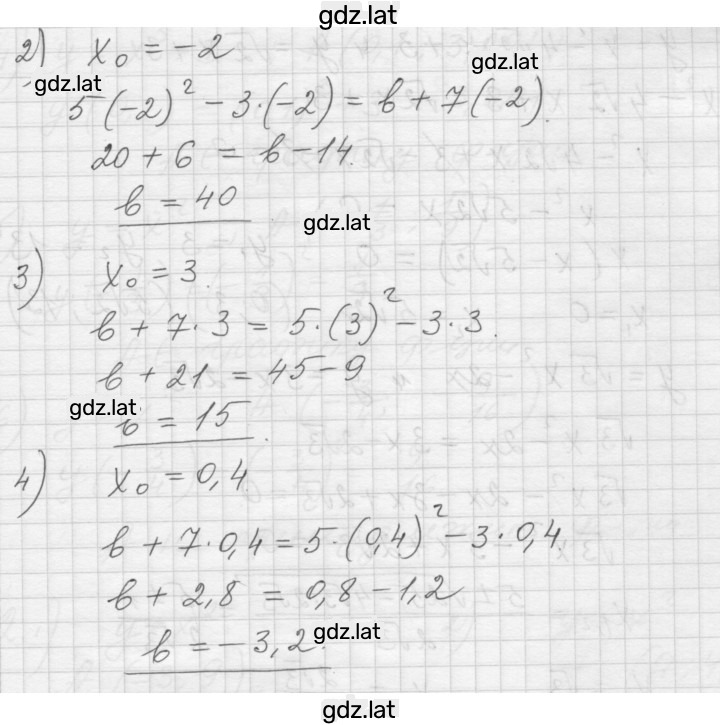 gdz.lat
2) x₀ = -2
gdz.lat
gdz.lat
5(-2)² - 3·(-2) = b + 7(-2).
20 + 6 = b - 14.
b = 40
gdz.lat
3) x₀ = 3.
b + 7·3 = 5·(3)² - 3·3.
b + 21 = 45 - 9
gdz.lat
b = 15.
4) x₀ = 0,4
b + 7·0,4 = 5·(0,4)² - 3·0,4.
b + 2,8 = 0,8 - 1,2
gdz.lat
b = -3,2.
gdz.lat